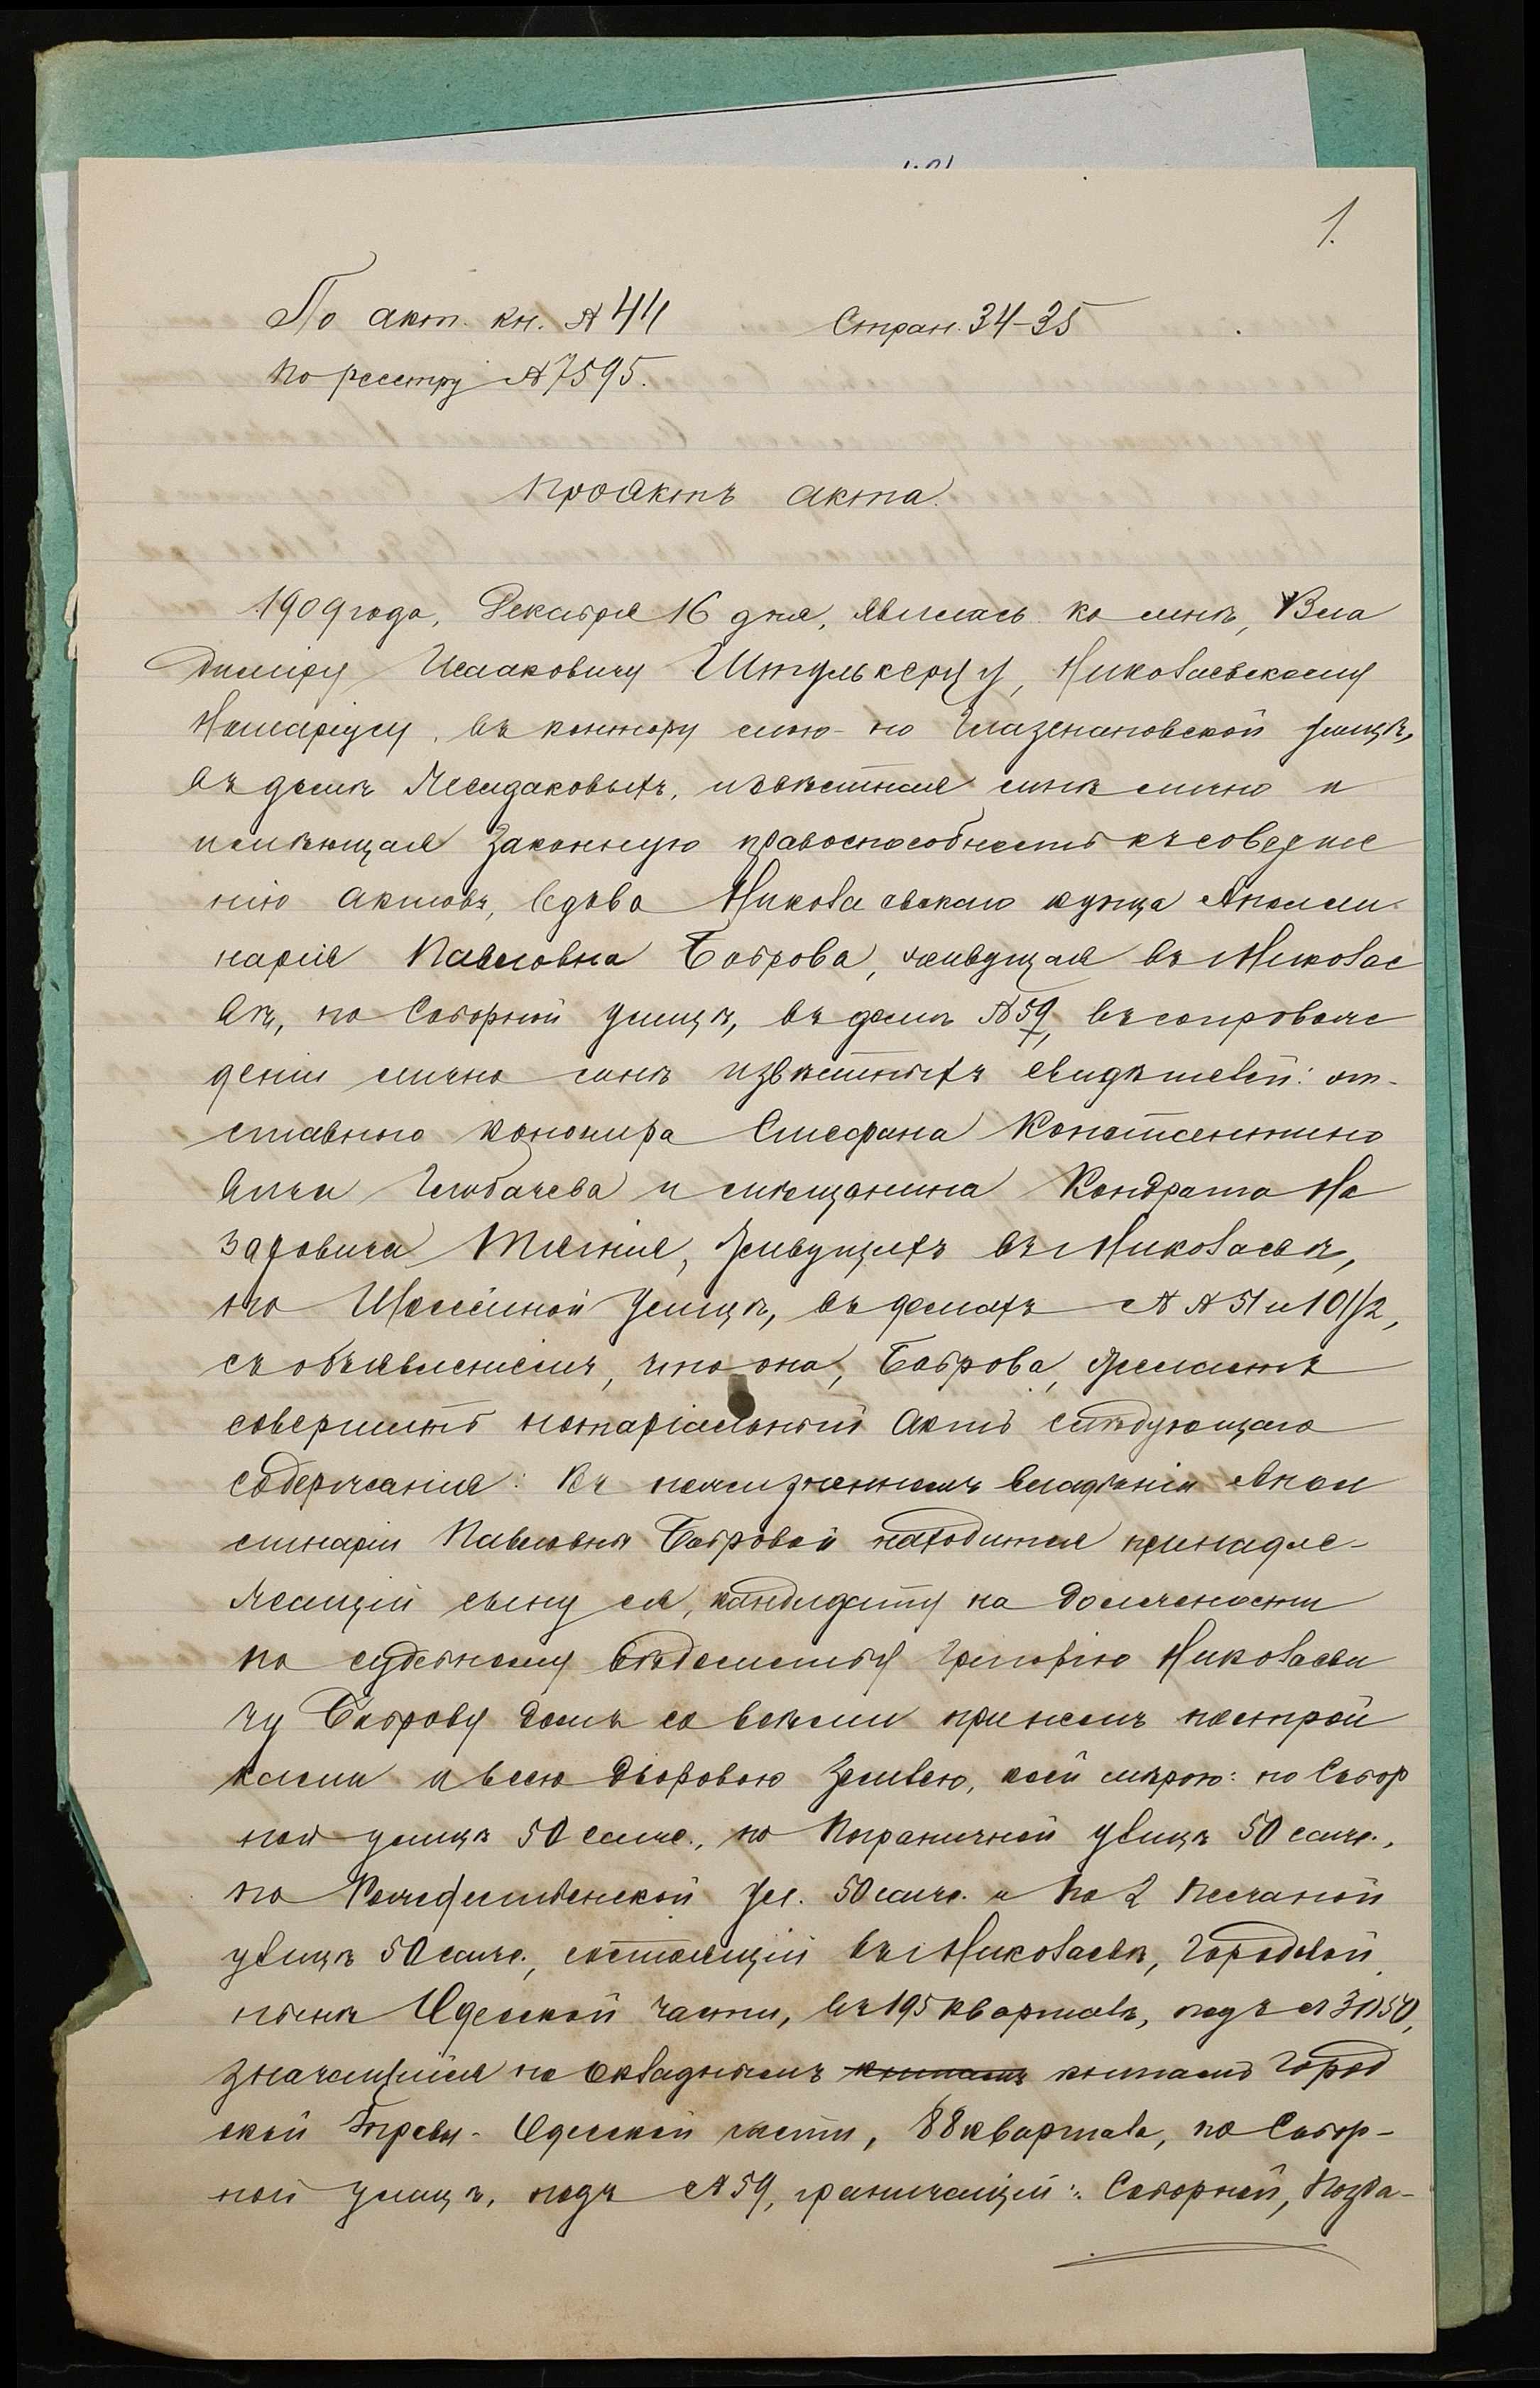 1.
По акт. кн. № 44 Стран. 34-35
по реестру № 7595.
Проэктъ акта.
1909 года, Декабря 16 дня, явилась ко мнѣ, Вла
диміру Исааковичу Штулькерцу, Николаевскому
Нотаріусу, въ контору мою по Глазенаповской улицѣ,
въ домѣ извѣстная мнѣ лично и
имѣющая законную правоспособность къ соверше
нію актовъ, вдова Николаевскаго купца Аполли
нарія Павловна Боброва, живущая въ Николае
вѣ, по Соборной улицѣ, въ домѣ № 59, въ сопровож
деніи лично мнѣ извѣстныхъ свидѣтелей: от-
ставного канонира Стефана Константино
вича и мѣщанина Кондрата На
заровича Тягния, живущихъ въ Николаевѣ,
по Шоссейной улицѣ, въ домахъ № № 51 и 101/2,
съ объявленіемъ, что она, Боброва, желаетъ
совершить нотаріальный актъ слѣдующаго
содержанія: Въ пожизненномъ владѣніи Апол
линаріи Павловны Бобровой находится принадле-
жащій сыну ея, кандидату на должности
по судебному вѣдомству Григорію Николаеви
чу Боброву домъ со всѣми при немъ построй
ками и всею дворовою землею, коей мѣрою: по Собор
ной улицѣ 50 саж., по Пограничной улицѣ 50 саж.,
по Рождественской ул. 50 саж. и по 2 Песчаной
улицѣ 50 саж., состоящій въ Николаевѣ, Городовой
нынѣ Одесской части, въ 195 кварталѣ, подъ № 3050,
значащійся по окладнымъ книгамъ книгамъ Город
ской Управы - Одесской части, 88 квартала, по Собор-
ной улицѣ, подъ № 59, граничащій: Соборной,